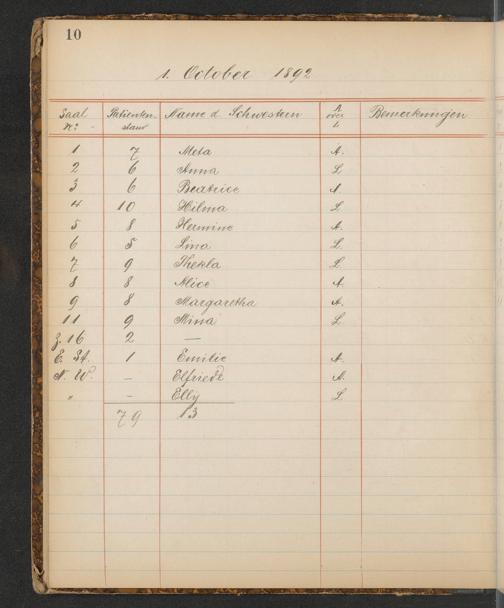 10
1. October 1892
Saal Nr. Patienten-stand Name d. Schwestern A. oder L. Bemerkungen
1 7 Meta A.
2 6 Anna L.
3 6 Beatrice A.
4 10 Hilma L.
5 8 Hermine A.
6 5 Lina L.
7 9 Thekla L.
8 8 Alice A.
9 8 Margaretha A.
11 9 Mina L.
Z. 16 2 —
E. St. 1 Emilie A.
N. W. – Elfriede A.
" – Elly L.
79 13